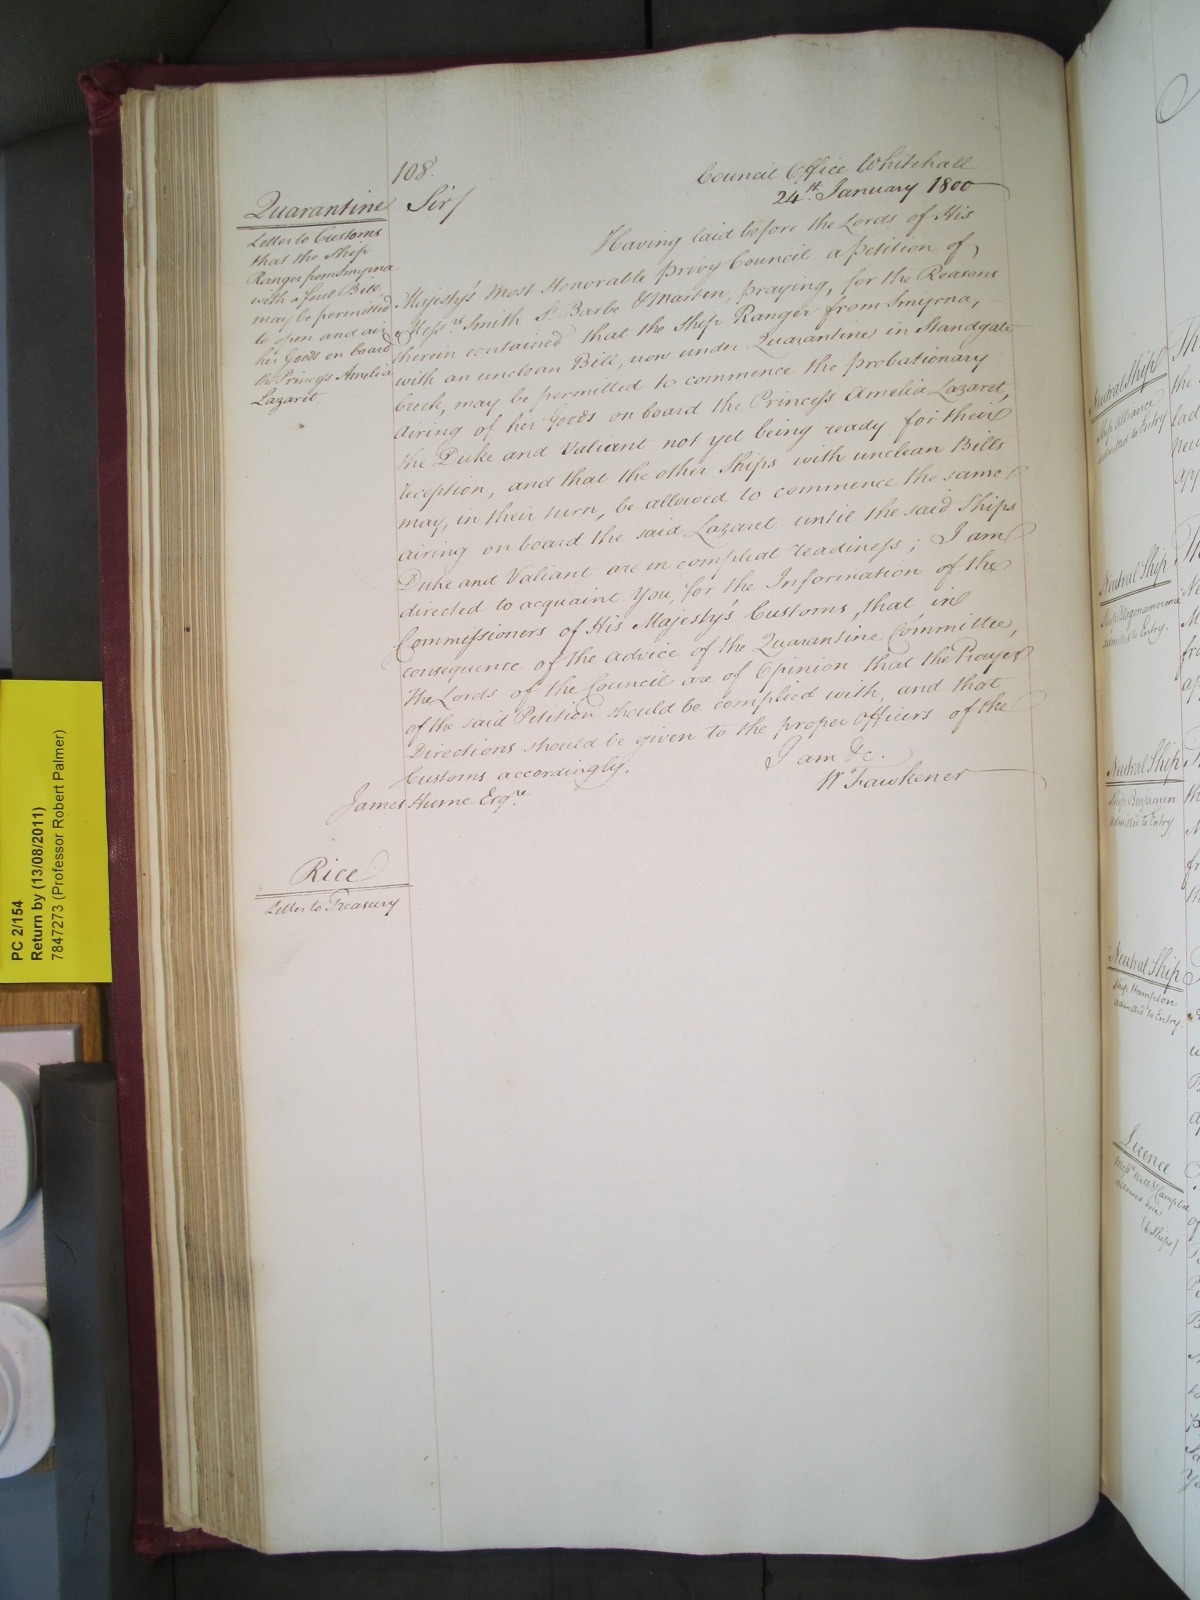 108.
Council Office Whitehall
24th January 1800
Quarantine
Letter to Customs
that the Ship
Ranger from Smyrna
with a foul Bill,
may be permitted
to open and air
her Goods on board
the Princess Amelia
Lazaret.
Sir/
Having laid before the Lords of His
Majesty's Most Honorable Privy Council a petition of
Messrs. Smith St Barbe & Marten, praying, for the Reasons
therein contained that the Ship Ranger from Smyrna,
with an unclean Bill, now under Quarantine in Standgate
Creek, may be permitted to commence the probationary
airing of her Goods on board the Princess Amelia Lazaret,
the Duke and Valiant not yet being ready for their
reception, and that the other Ships with unclean Bills
may, in their turn, be allowed to commence the same
airing on board the said Lazaret until the said Ships
Duke and Valiant are in compleat readiness; I am
directed to acquaint You, for the Information of the
Commissioners of His Majesty's Customs, that in
consequence of the advice of the Quarantine Committee,
the Lords of the Council are of Opinion that the Prayer
of the said Petition should be complied with, and that
Directions should be given to the proper Officers of the
Customs accordingly.
I am &c.
W Fawkener
James Hume Esqre.
Rice
Letter to Treasury
PC 2/154
Return by (13/08/2011)
7847273 (Professor Robert Palmer)
Neutral Ship
Ship Alliance
admitted to Entry
Neutral Ship
admitted to Entry.
Neutral Ship
Ship Benjamin
admitted to Entry
Neutral Ship
Ship Hampton
admitted to Entry.
Licence
(6 Ships)